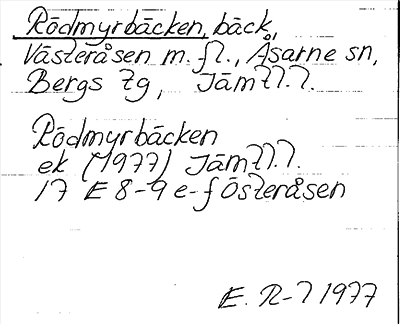 Rödmyrbäcken, bäck,
Västeråsen m. fl., Åsarne sn,
Bergs tg, Jämtl.
Rödmyrbäcken
ek (1977) Jämtl.
17 E 8-9 e-f Österåsen
E. R-l 1977